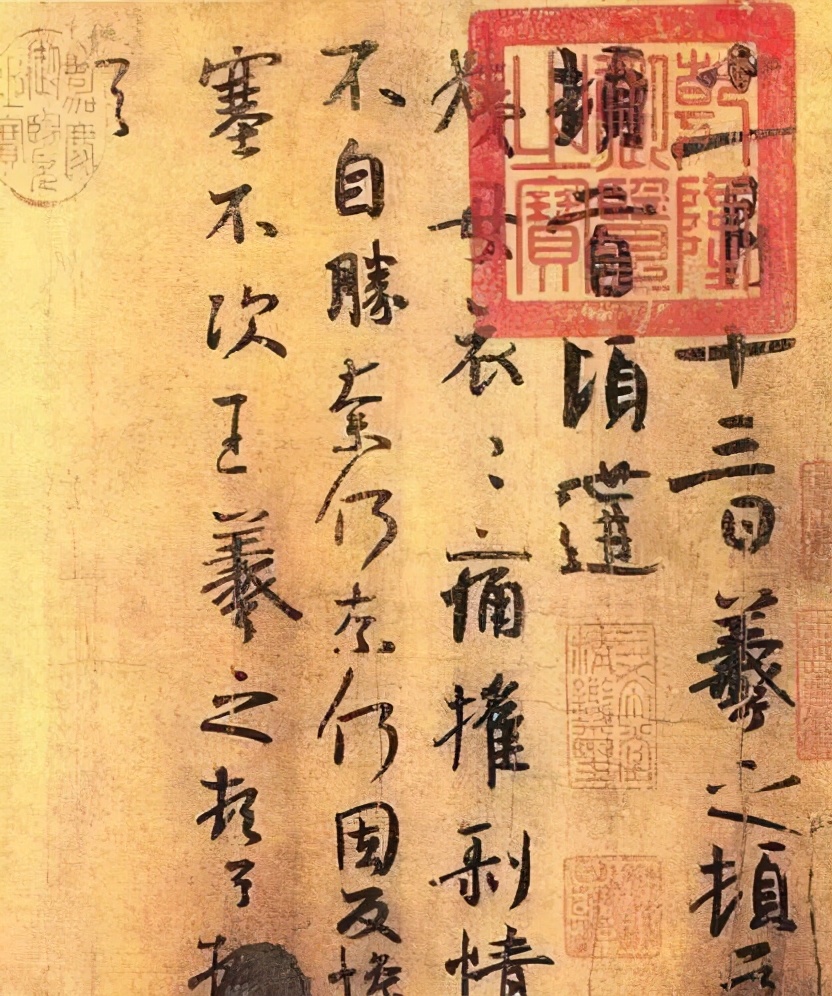 一月十三日羲之頓首
頓首頃遘
姨母哀哀痛摧剥情
不自勝奈何奈何因反慘
塞不次王羲之頓首頓
首
乾隆御覽之寶
嘉慶御覽之寶
三希堂精鑑璽